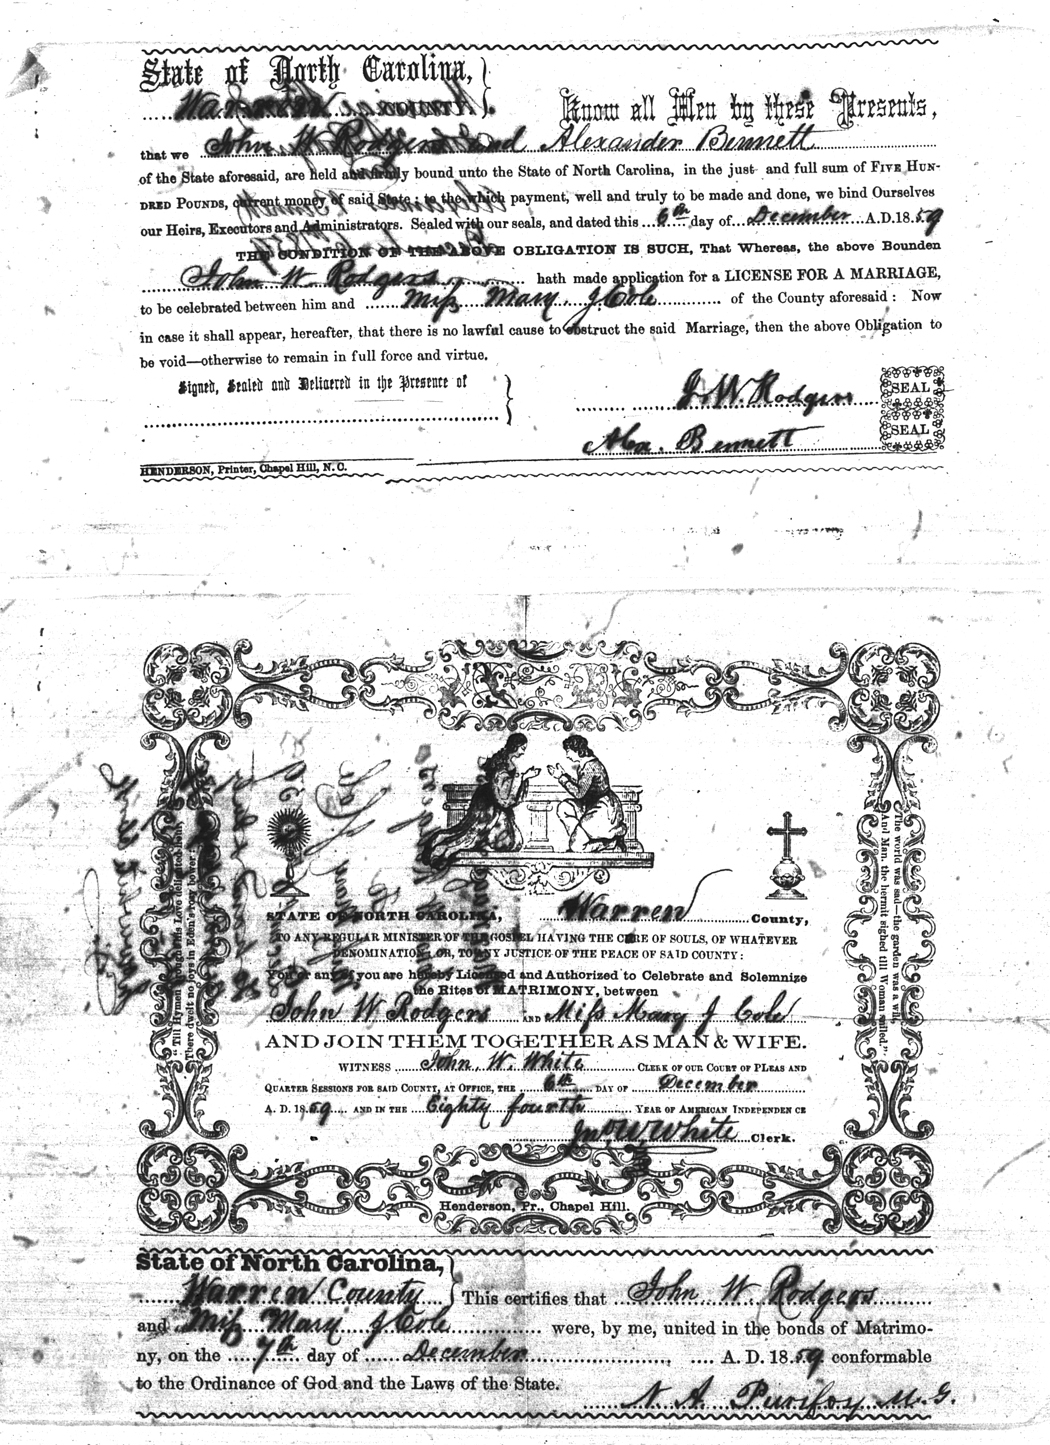 State of North Carolina,
Warren
Know all Men by these Presents,
that we John W Rodgers and Alexander Bennett
of the State aforesaid, are held and firmly bound unto the State of North Carolina, in the just and full sum of FIVE HUN-
DRED POUNDS, current money of said State; to the which payment, well and truly to be made and done, we bind Ourselves
our Heirs, Executors and Administrators. Sealed with our seals, and dated this 6th day of December A.D. 1859
THE CONDITION OF THE ABOVE OBLIGATION IS SUCH, That Whereas, the above Bounden
John W. Rodgers hath made application for a LICENSE FOR A MARRIAGE,
to be celebrated between him and Miss Mary J Cole of the County aforesaid: Now
in case it shall appear, hereafter, that there is no lawful cause to obstruct the said Marriage, then the above Obligation to
be void—otherwise to remain in full force and virtue.
Signed, Sealed and Delivered in the Presence of
J. W. Rodgers SEAL
Alex. Bennett SEAL
HENDERSON, Printer, Chapel Hill, N. C.
"Till Hymen brought his Love-delighted hour,
There dwelt no joys in Eden's rosy bower:
"The world was sad,—the garden was a wild,
And Man, the hermit sighed till Woman smiled."
STATE OF NORTH CAROLINA, Warren County,
TO ANY REGULAR MINISTER OF THE GOSPEL HAVING THE CURE OF SOULS, OF WHATEVER
DENOMINATION; OR, TO ANY JUSTICE OF THE PEACE OF SAID COUNTY:
You or any of you are hereby Licensed and Authorized to Celebrate and Solemnize
the Rites of MATRIMONY, between
John W Rodgers AND Miss Mary J Cole
AND JOIN THEM TOGETHER AS MAN & WIFE.
WITNESS John W. White CLERK OF OUR COURT OF PLEAS AND
QUARTER SESSIONS FOR SAID COUNTY, AT OFFICE, THE 6th DAY OF December
A. D. 1859 AND IN THE Eighty fourth YEAR OF AMERICAN INDEPENDENCE
Jno W White Clerk.
Henderson, Pr., Chapel Hill.
State of North Carolina,
Warren County This certifies that John W Rodgers
and Miss Mary J Cole were, by me, united in the bonds of Matrimo-
ny, on the 7th day of December, A. D. 1859 conformable
to the Ordinance of God and the Laws of the State.
N. A. Purifoy M. G.